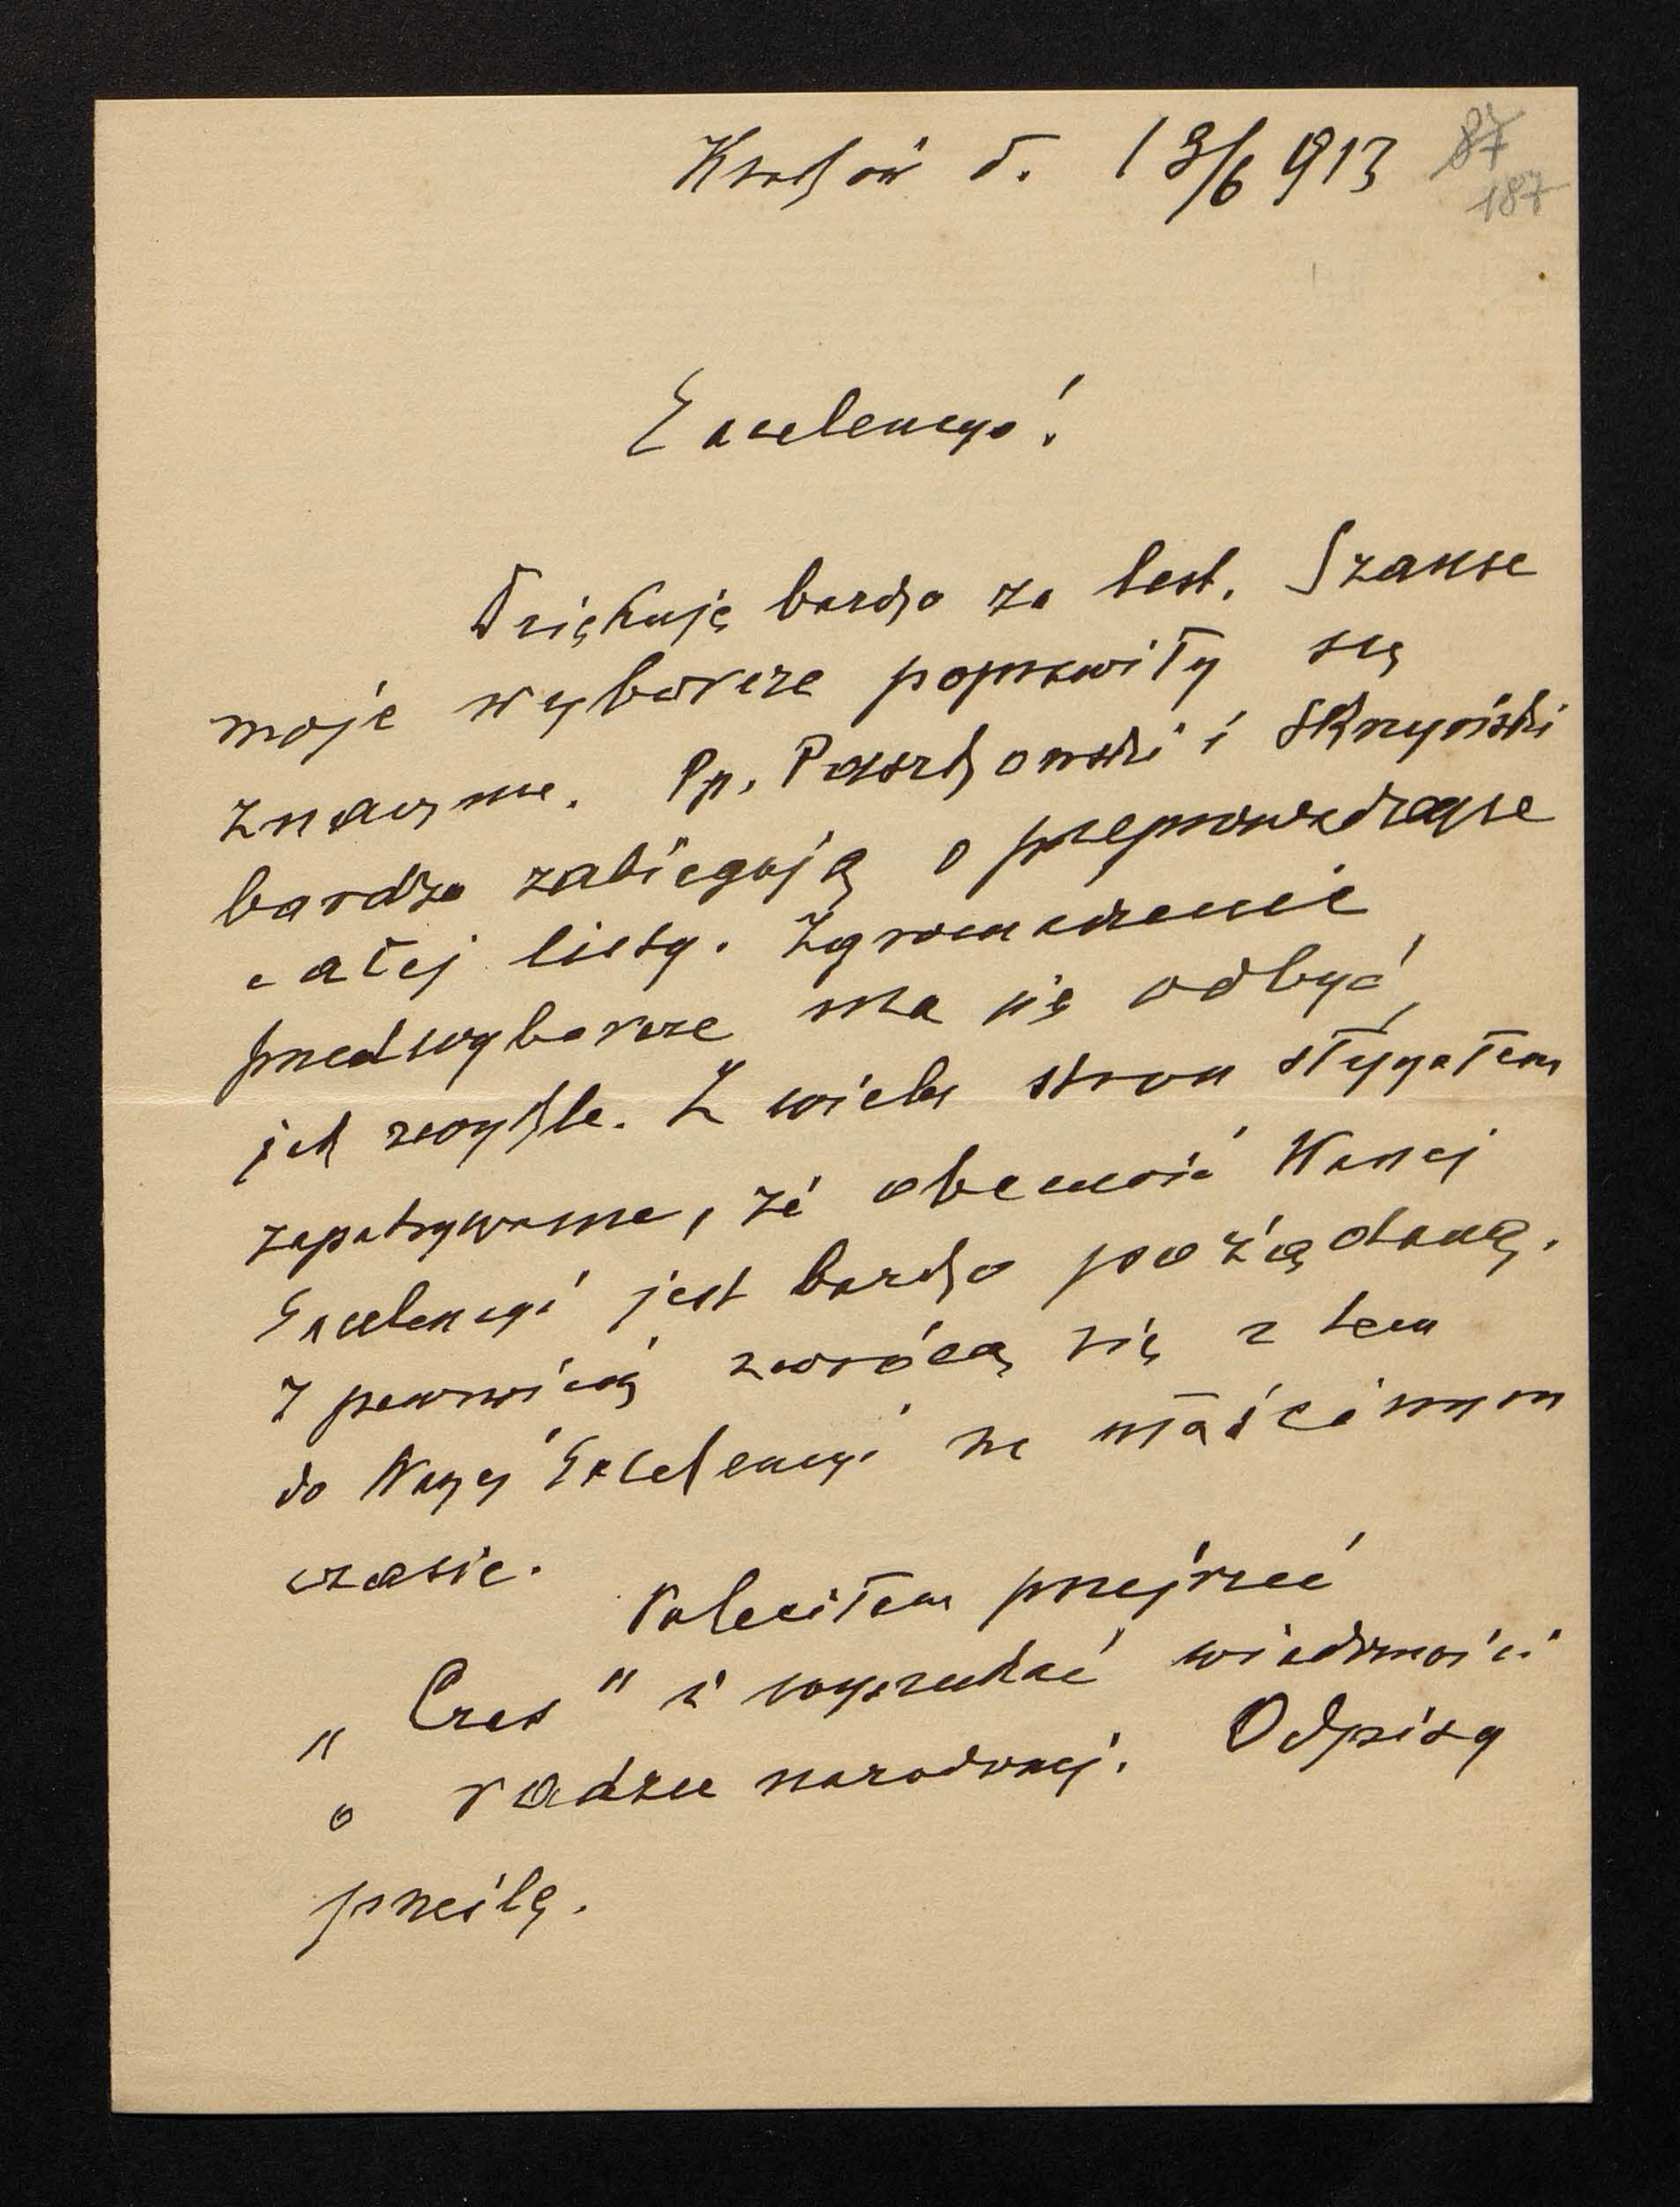 Kraków d. 13/6 913
87
187
Excelencyo!
Dziękuję bardzo za list. Szanse
moje wyborcze poprawiły się
znacznie. Pp. Paszkowski i Skrzyński
bardzo zabiegają o przeprowadzenie
całej listy. Zgromadzenie
przedwyborcze ma się odbyć,
jak zwykle. Z wielu stron słyszałem
zapatrywanie, że obecność Waszej
Excelencyi jest bardzo pożądaną.
Z pewnością zwrócą się z tem
do Waszej Excelencyi we właściwym
czasie.
Poleciłem przejrzeć
„Czas" i wyszukać wiadomości
o radzie narodowej. Odpisy
prześlę.